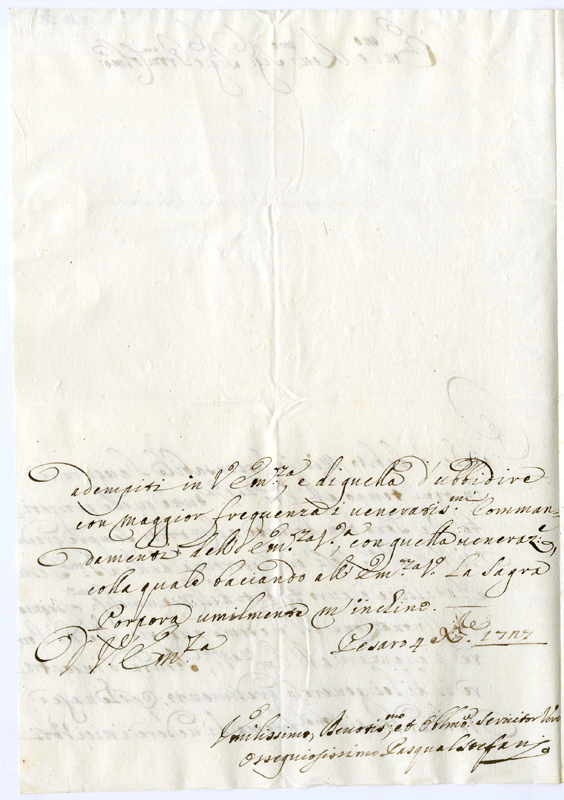 adempiti in V.ª Em.za, e di quella d'ubbidire
con maggior frequenza i veneratis.mi Comman-
damenti dell'Em.za V.ª, con quella veneraz.e,
colla quale baciando all'Em.za V.ª La Sagra
Porpora umilmente m'inchino.
D. V. Em.za
Pesaro 4 Xbre. 1727
Umilissimo, Devotis.mo, et Obbl.mo Servitor Vero
Ossequiosissimo Pasqual Stefani